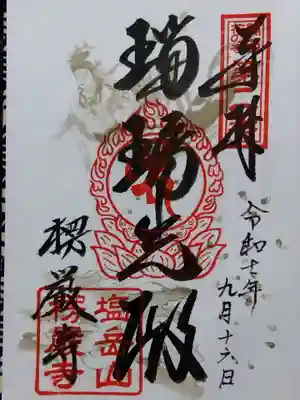 奉拝
令和七年
九月十六日
瑠璃光殿
楞厳寺
塩岳山
楞厳寺